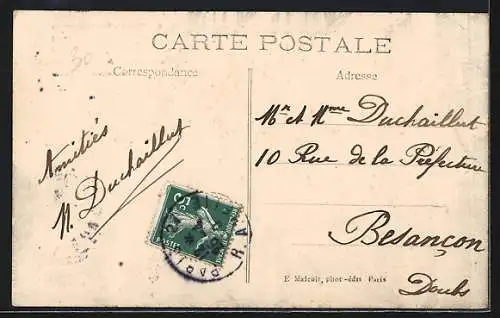 CARTE POSTALE
Correspondance
Adresse
Amitiés
N. Duchaillut
Mr et Mme Duchaillut
10 Rue de la Préfecture
Besançon
Doubs
PARIS
R. A
E Malcuit, phot-édit Paris